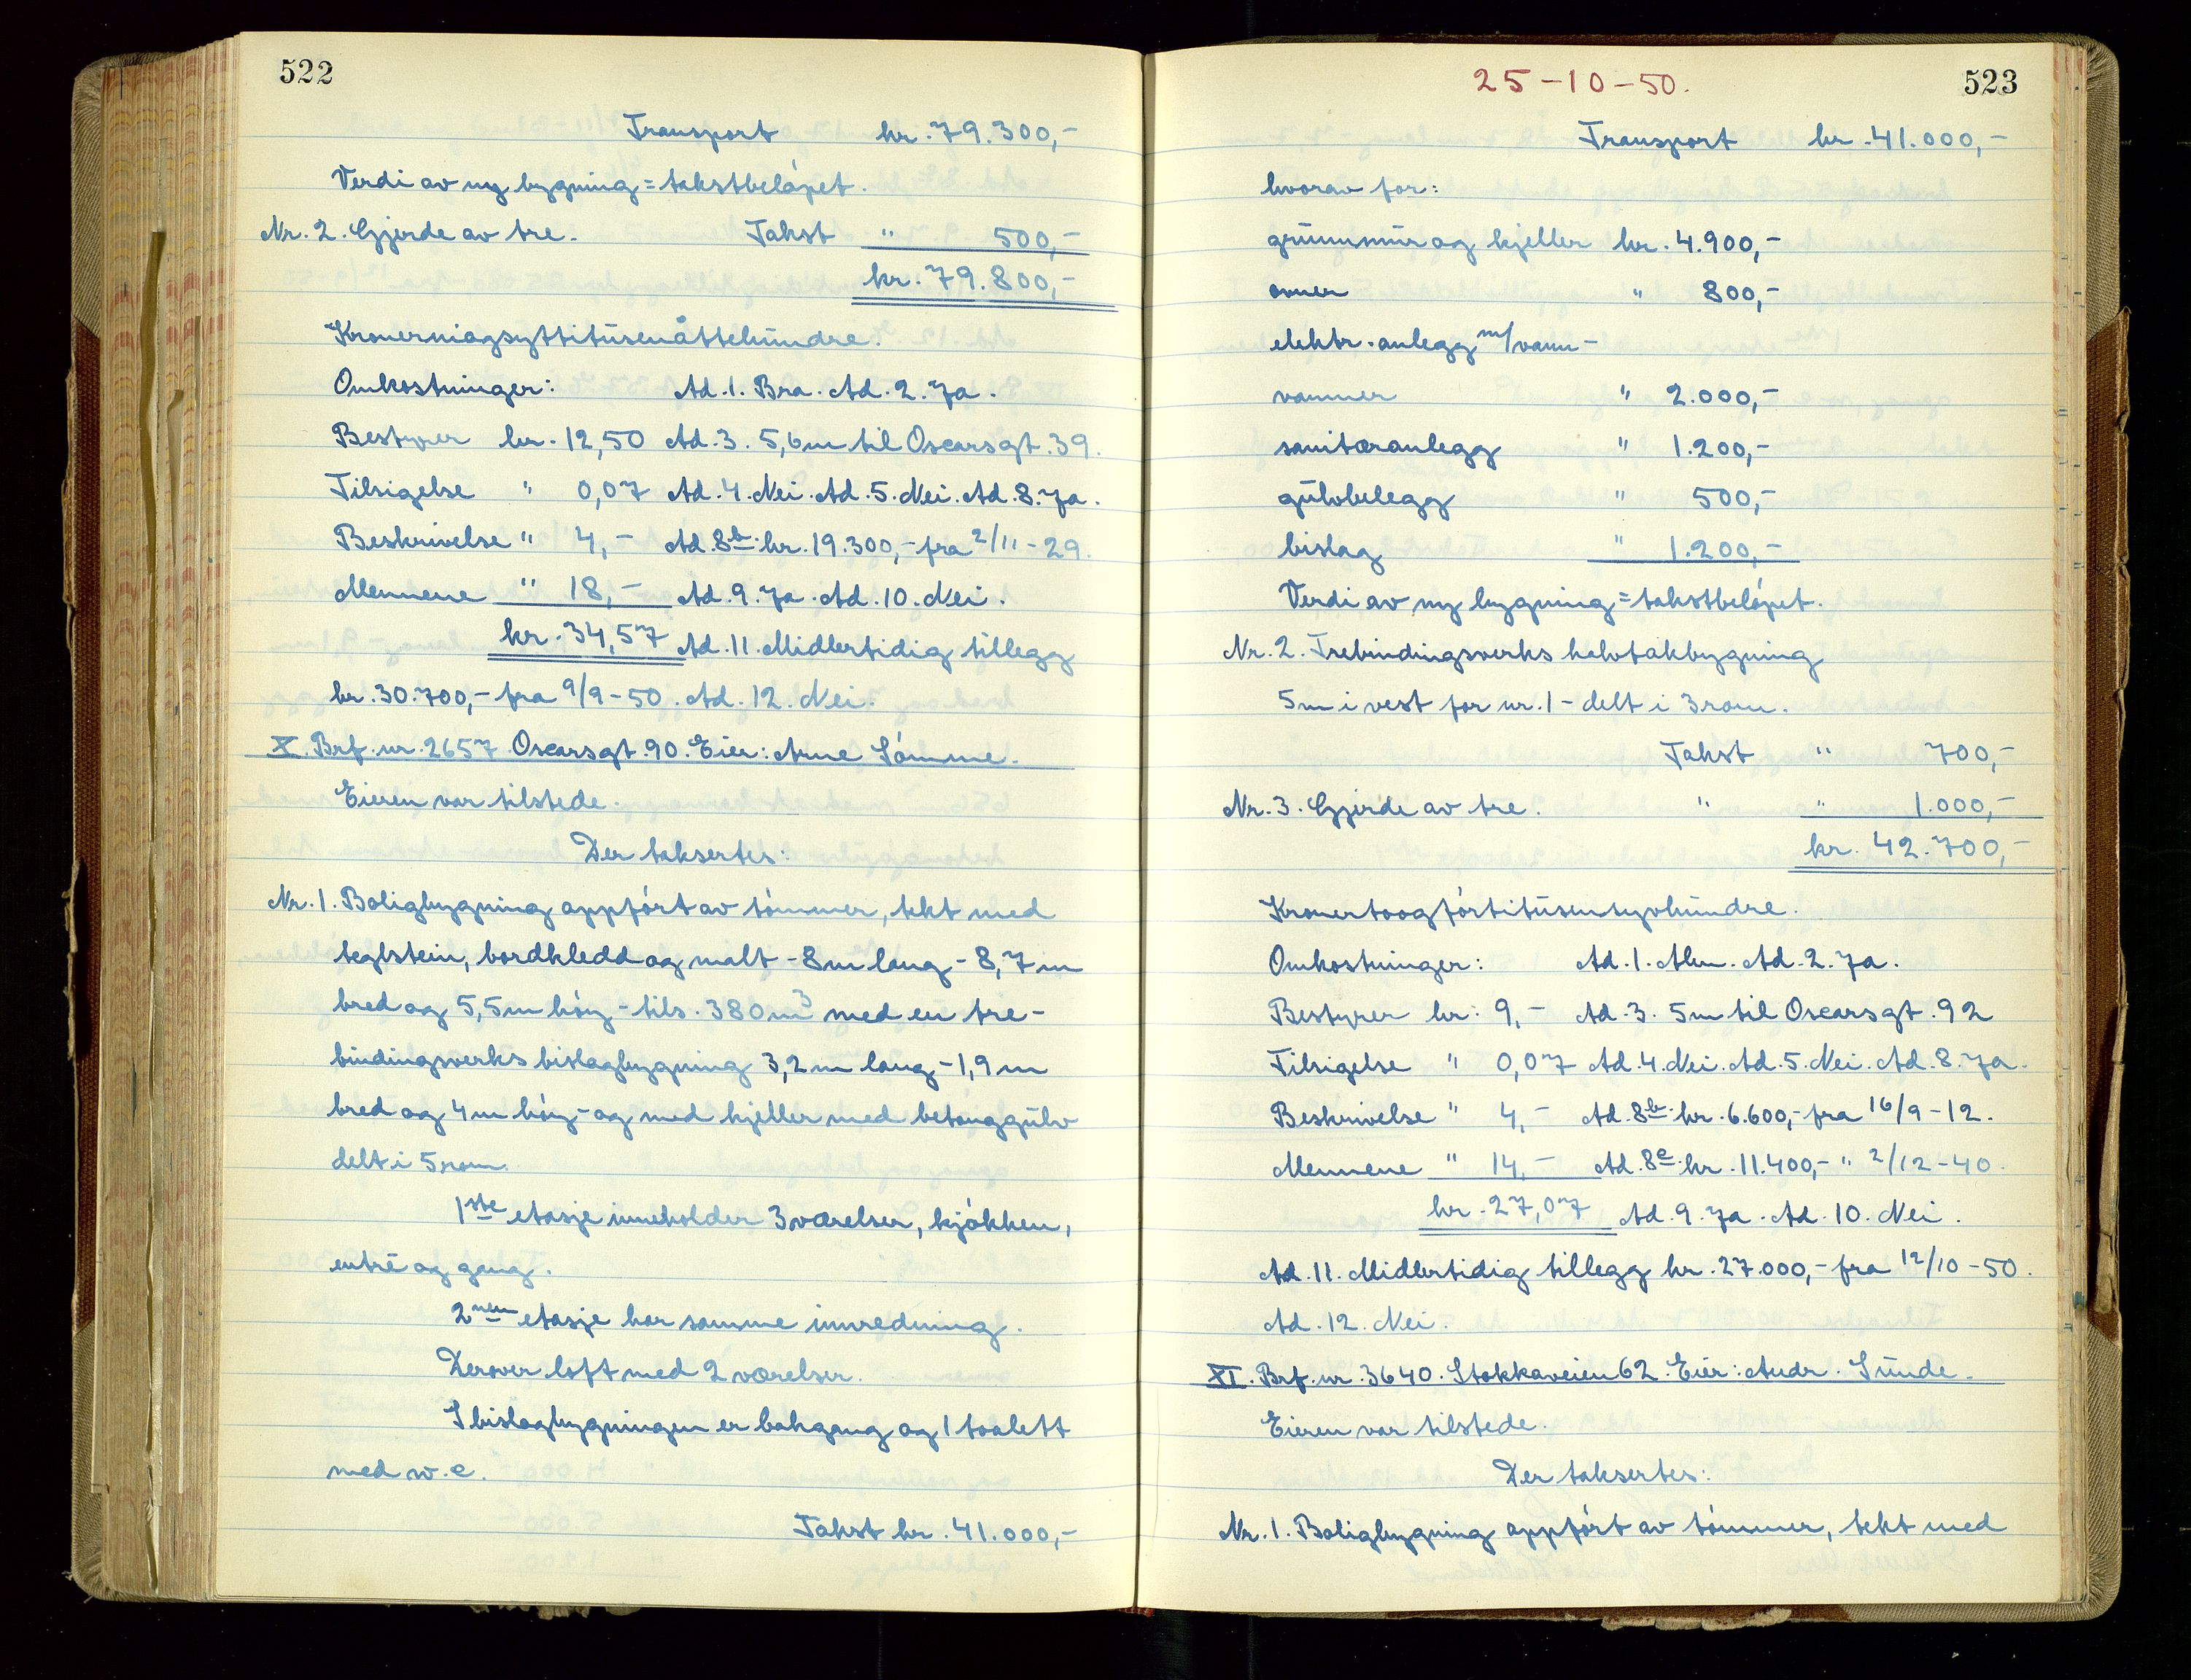 522
Transport kr. 79.300,-
Verdi av ny bygning = takstbeløpet.
Nr. 2. Gjerde av tre. Takst " 500,-
kr. 79.800,-
Kronerniogsyttitusenåttehundre.
Omkostninger: Ad. 1. Bra. Ad. 2. Ja.
Bestyrer kr. 12,50 Ad. 3. 5,6 m til Oscarsgt. 39.
Tilsigelse " 0,07 Ad. 4. Nei. Ad. 5. Nei. Ad. 8. Ja.
Beskrivelse " 4,- Ad. 8b. kr. 19.300,- fra 2/11-29.
Mennene " 18,- Ad. 9. Ja. Ad. 10. Nei.
kr. 34,57 Ad. 11. Midlertidig tillegg
kr. 30.700,- fra 9/9-50. Ad. 12. Nei.
X. Brf. nr. 2657 Oscarsgt. 90. Eier: Arne Sømme.
Eieren var tilstede.
Der taksertes:
Nr. 1. Boligbygning oppført av tømmer, tekt med
teglstein, bordkledd og malt - 8 m lang - 8,7 m
bred og 5,5 m høy - tils. 380 m3 med en tre-
bindingsverks bislagbygning 3,2 m lang - 1,9 m
bred og 4 m høy - og med kjeller med betonggulv
delt i 5 rom.
1ste etasje inneholder 3 værelser, kjøkken,
entré og gang.
2nen etasje har samme innredning.
Derover loft med 2 værelser.
I bislagbygningen er bakgang og 1 toalett
med w.c.
Takst kr. 41.000,-
25-10-50.
523
Transport kr. 41.000,-
hvorav for:
grunnmur og kjeller kr. 4.900,-
ovner " 800,-
elektr. anlegg m/vann-
varmer " 2.000,-
sanitæranlegg " 1.200,-
gulvbelegg " 500,-
bislag " 1.200,-
Verdi av ny bygning = takstbeløpet.
Nr. 2. Trebindingsverks halvtakbygning
5 m i vest for nr. 1 - delt i 3 rom.
Takst " 700,-
Nr. 3. Gjerde av tre. " " 1.000,-
kr. 42.700,-
Kronertoogførtitusensyvhundre.
Omkostninger: Ad. 1. Alm. Ad. 2. Ja.
Bestyrer kr: 9,- Ad. 3. 5 m til Oscarsgt. 92
Tilsigelse " 0,07 Ad. 4. Nei. Ad. 5. Nei. Ad. 8. Ja.
Beskrivelse " 4,- Ad. 8b. kr. 6.600,- fra 16/9-12.
Mennene " 14,- Ad. 8e. kr. 11.400,- " 2/12-40.
kr. 27,07 Ad. 9. Ja. Ad. 10. Nei.
Ad. 11. Midlertidig tillegg kr. 27.000,- fra 12/10-50.
Ad. 12. Nei.
XI. Brf. nr. 3640. Stokkaveien 62. Eier: Andr. Sunde.
Eieren var tilstede.
Der taksertes:
Nr. 1. Boligbygning oppført av tømmer, tekt med